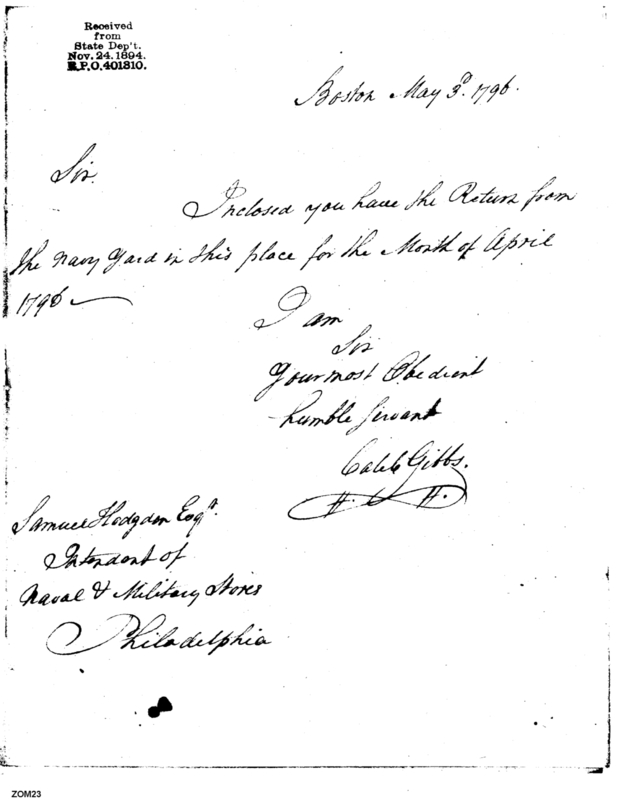 Received
from
State Dep't.
Nov. 24. 1894.
R.P.O. 401310.
Boston May 3d. 1796.
Sir.
Inclosed you have the Return from
the Navy Yard in this place for the Month of April
1796
I am
Sir
Your most Obedient
humble servant
Caleb Gibbs.
Samuel Hodgdon Esqr.
Intendant of
Naval & Military Stores
Philadelphia
ZOM23